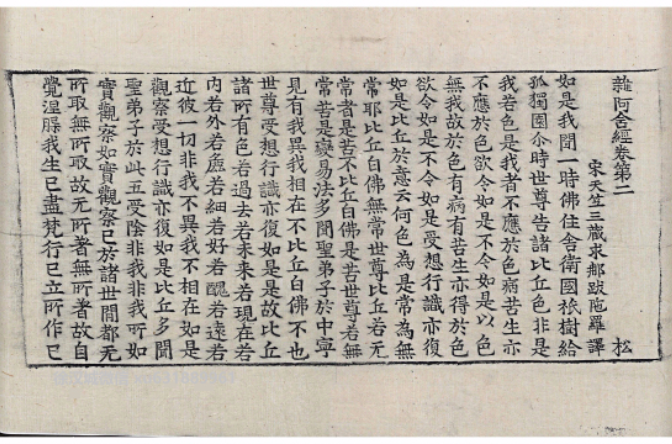 雜阿含經卷第二
宋天竺三藏求那跋陁羅譯 松
如是我聞一時佛住舍衛國祇樹給
孤獨園尒時世尊告諸比丘色非是
我若色是我者不應於色病苦生亦
不應於色欲令如是不令如是以色
無我故於色有病有苦生亦得於色
欲令如是不令如是受想行識亦復
如是比丘於意云何色為是常為無
常耶比丘白佛無常世尊比丘若无
常者是苦不比丘白佛是苦世尊若無
常苦是變易法多聞聖弟子於中寧
見有我異我相在不比丘白佛不也
世尊受想行識亦復如是是故比丘
諸所有色若過去若未來若現在若
内若外若麁若細若好若醜若遠若
近彼一切非我不異我不相在如是
觀察受想行識亦復如是比丘多聞
聖弟子於此五受陰非我非我所如
實觀察如實觀察已於諸世間都无
所取無所取故无所著無所著故自
覺涅槃我生已盡梵行已立所作已